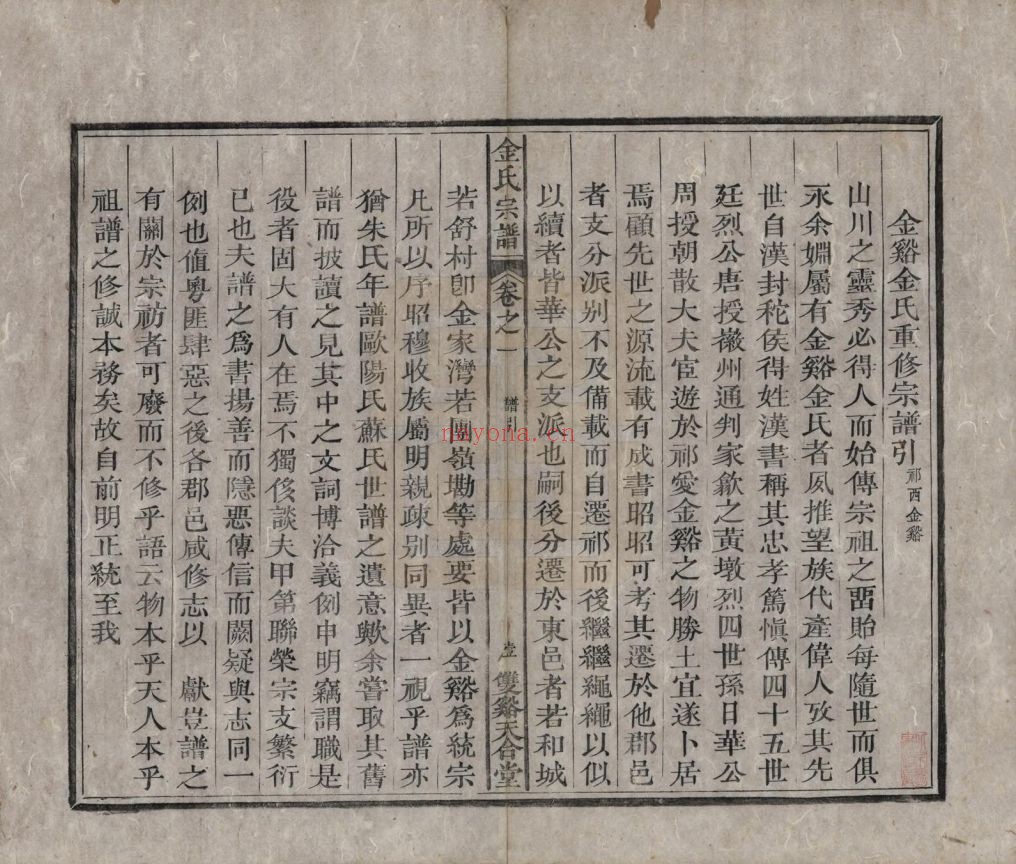 金谿金氏重修宗譜引 祁西金谿
山川之靈秀必得人而始傳宗祖之畱貽每隨世而俱
永余婣屬有金谿金氏者夙推望族代產偉人攷其先
世自漢封秺侯得姓漢書稱其忠孝篤愼傳四十五世
廷烈公唐授徽州通判家歙之黃墩烈四世孫日華公
周授朝散大夫宦遊於祁愛金谿之物勝土宜遂卜居
焉顧先世之源流載有成書昭昭可考其遷於他郡邑
者支分派別不及備載而自遷祁而後繼繼繩繩以似
以續者皆華公之支派也嗣後分遷於東邑者若和城
金氏宗譜 卷之一 譜引 壹 雙谿天合堂
若舒村卽金家灣若團嶺塝等處要皆以金谿爲統宗
凡所以序昭穆收族屬明親疎别同異者一視乎譜亦
猶朱氏年譜歐陽氏蘇氏世譜之遺意歟余嘗取其舊
譜而披讀之見其中之文詞博洽義例申明竊謂職是
役者固大有人在焉不獨侈談夫甲第聯榮宗支繁衍
已也夫譜之爲書揚善而隱惡傳信而闕疑與志同一
例也值粵匪肆惡之後各郡邑咸修志以 獻豈譜之
有關於宗祊者可廢而不修乎語云物本乎天人本乎
祖譜之修誠本務矣故自前明正統至我
mayona.cn